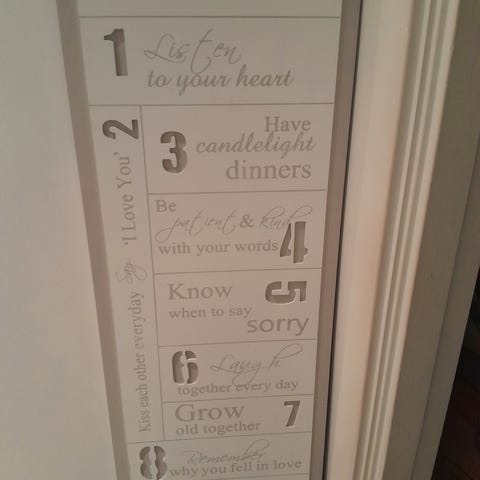 1 Listen
to your heart
2 Kiss each other everyday Say 'I Love You'
3 Have
candlelight
dinners
Be
patient & kind
with your words 4
Know 5
when to say
sorry
6 Laugh
together every day
Grow 7
old together
8 Remember
why you fell in love